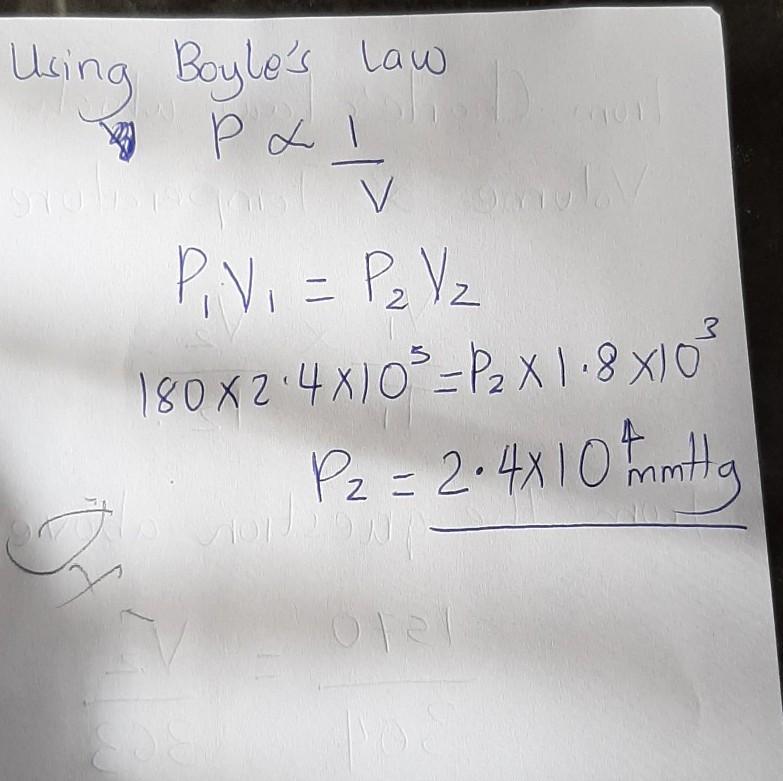 Using Boyle's Law
P ∝ 1/V
P₁V₁ = P₂V₂
180×2·4×10⁵=P₂×1·8×10³
P₂ = 2·4×10⁴mmHg